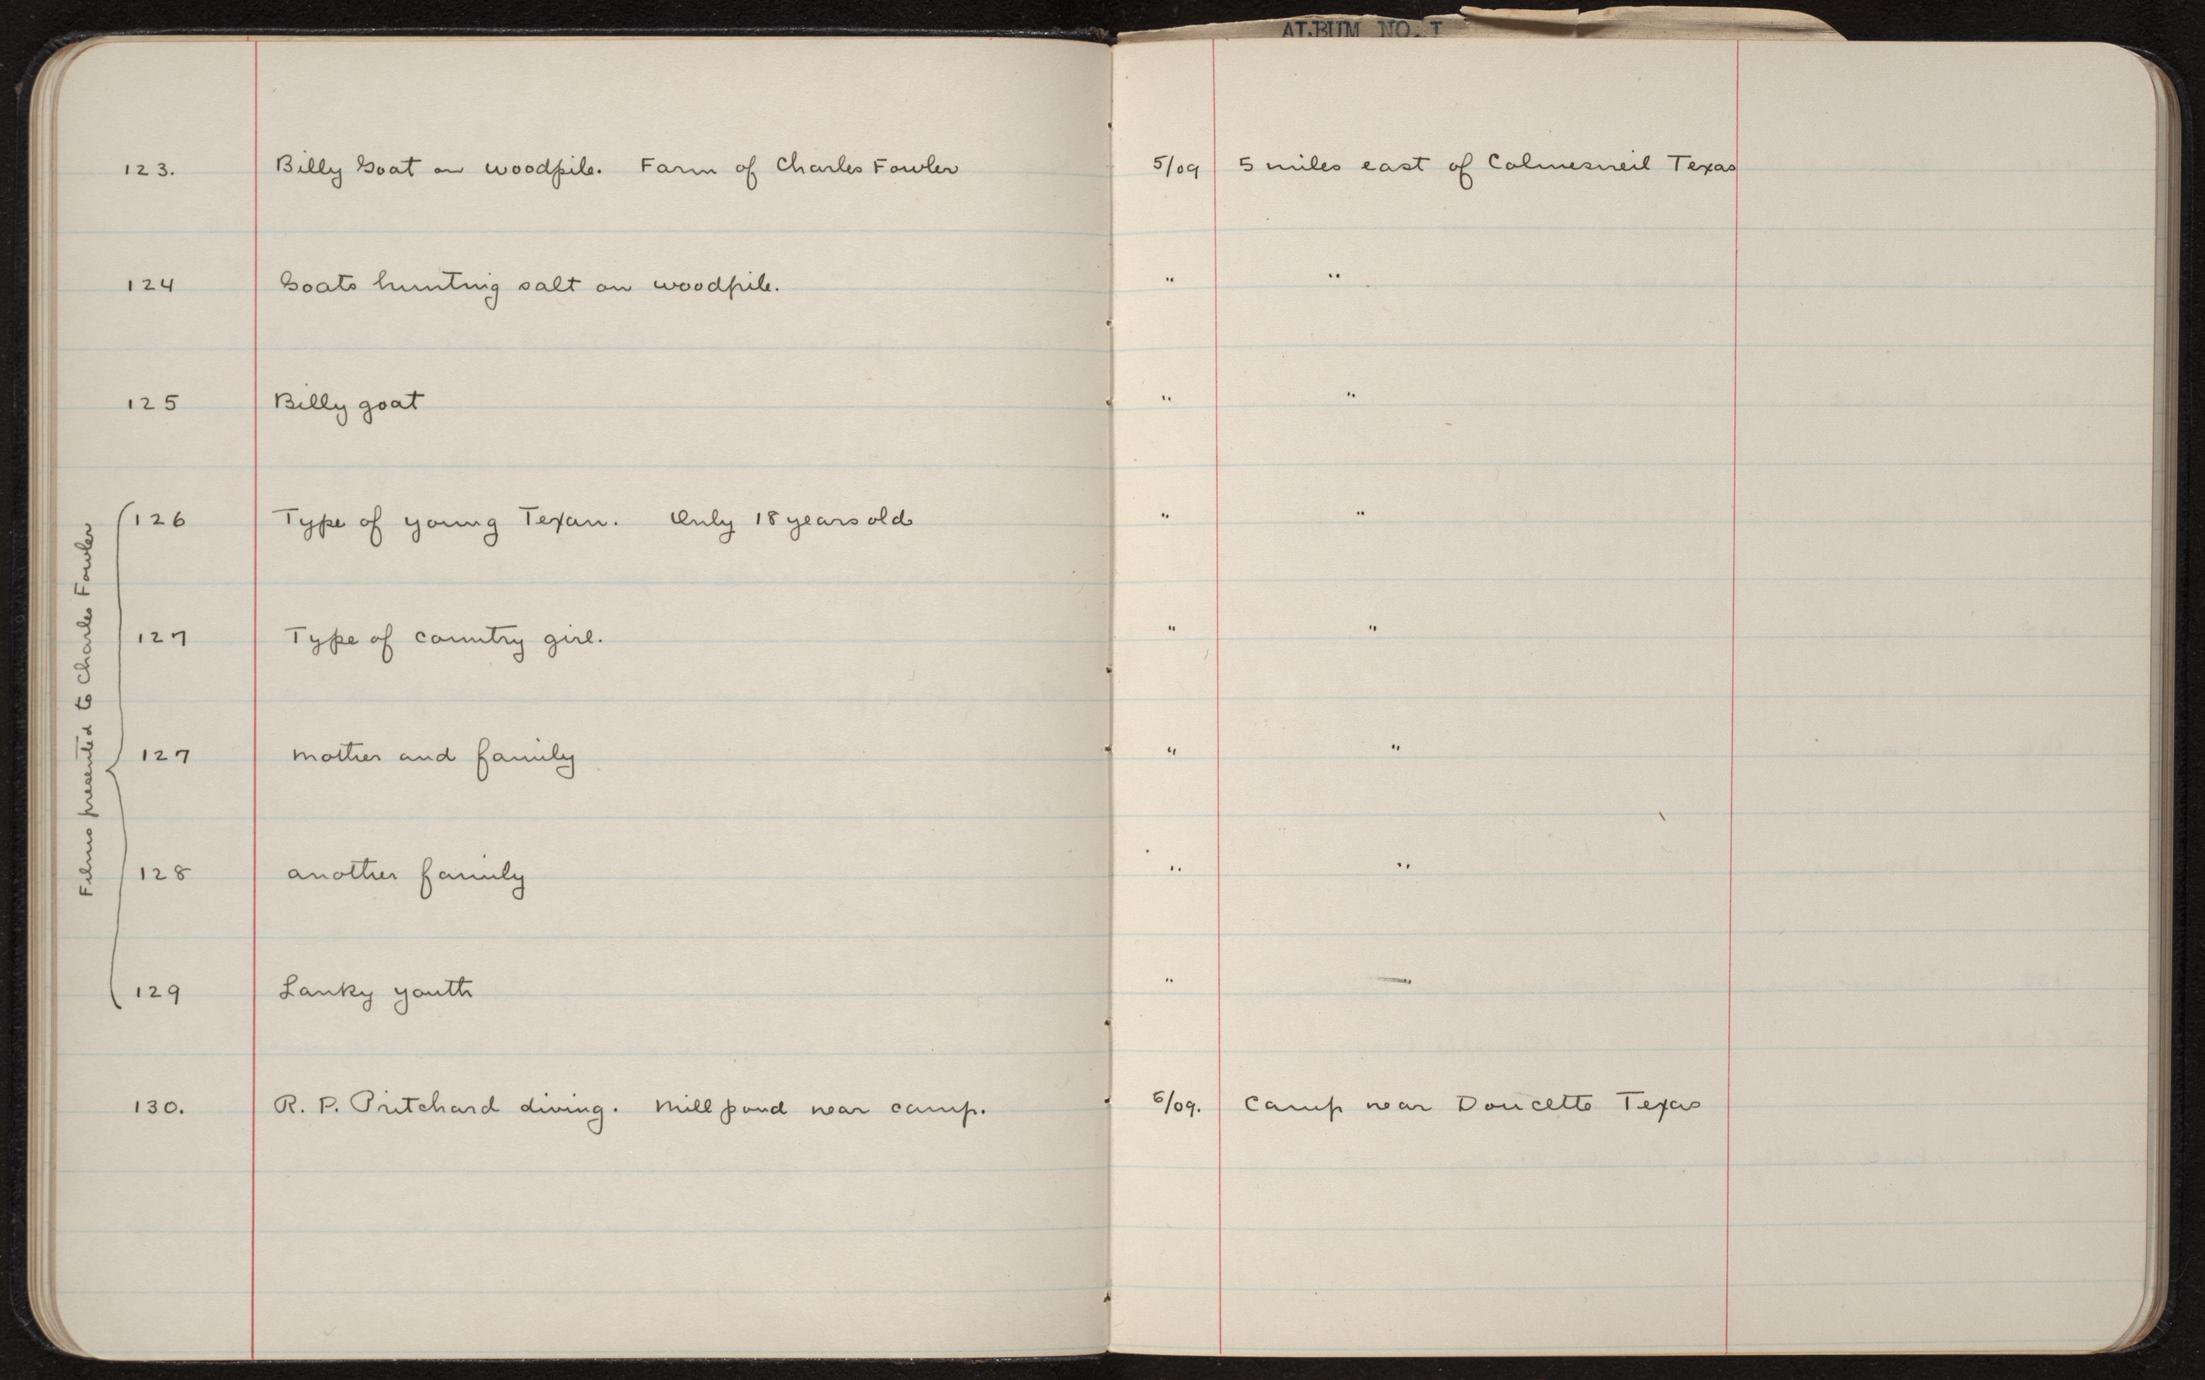 ALBUM NO. I
123. Billy Goat on woodpile. Farm of Charles Fowler 5/09 5 miles east of Colmesneil Texas
124 Goats hunting salt on woodpile. " "
125 Billy goat " "
Films presented to Charles Fowler
126 Type of young Texan. Only 18 years old " "
127 Type of country girl. " "
127 Mother and family " "
128 another family " "
129 Lanky youth " —
130. R. P. Pritchard diving. Mill pond near camp. 6/09. Camp near Doucette Texas